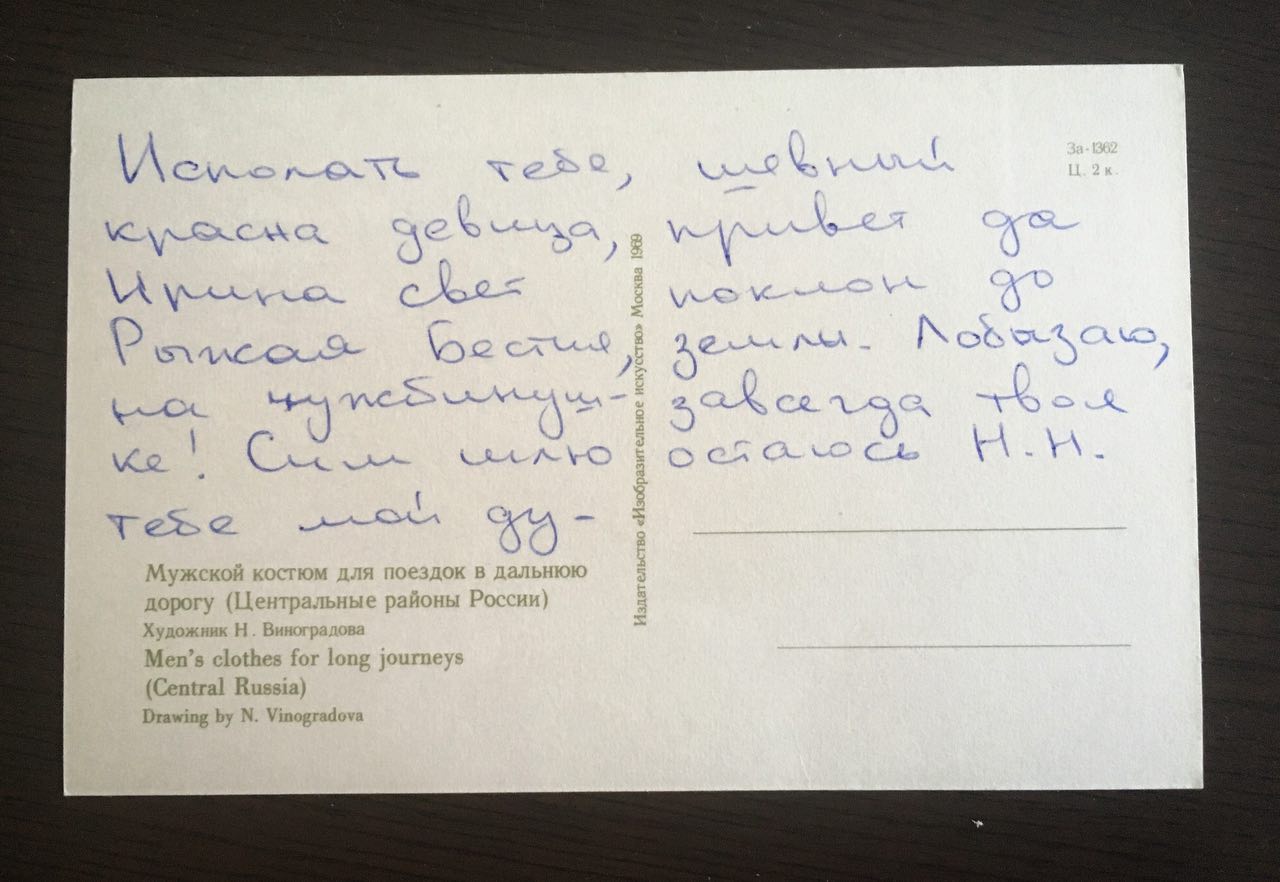 Исполать тебе,
красна девица,
Ирина свет
Рыжая Бестия,
на чужбинуш-
ке! Сим шлю
тебе мой ду-
шевный
привет да
поклон до
земли. Лобызаю,
завсегда твоя
остаюсь Н.Н.
За-1362
Ц. 2 к.
Издательство «Изобразительное искусство» Москва 1969
Мужской костюм для поездок в дальнюю
дорогу (Центральные районы России)
Художник Н. Виноградова
Men's clothes for long journeys
(Central Russia)
Drawing by N. Vinogradova